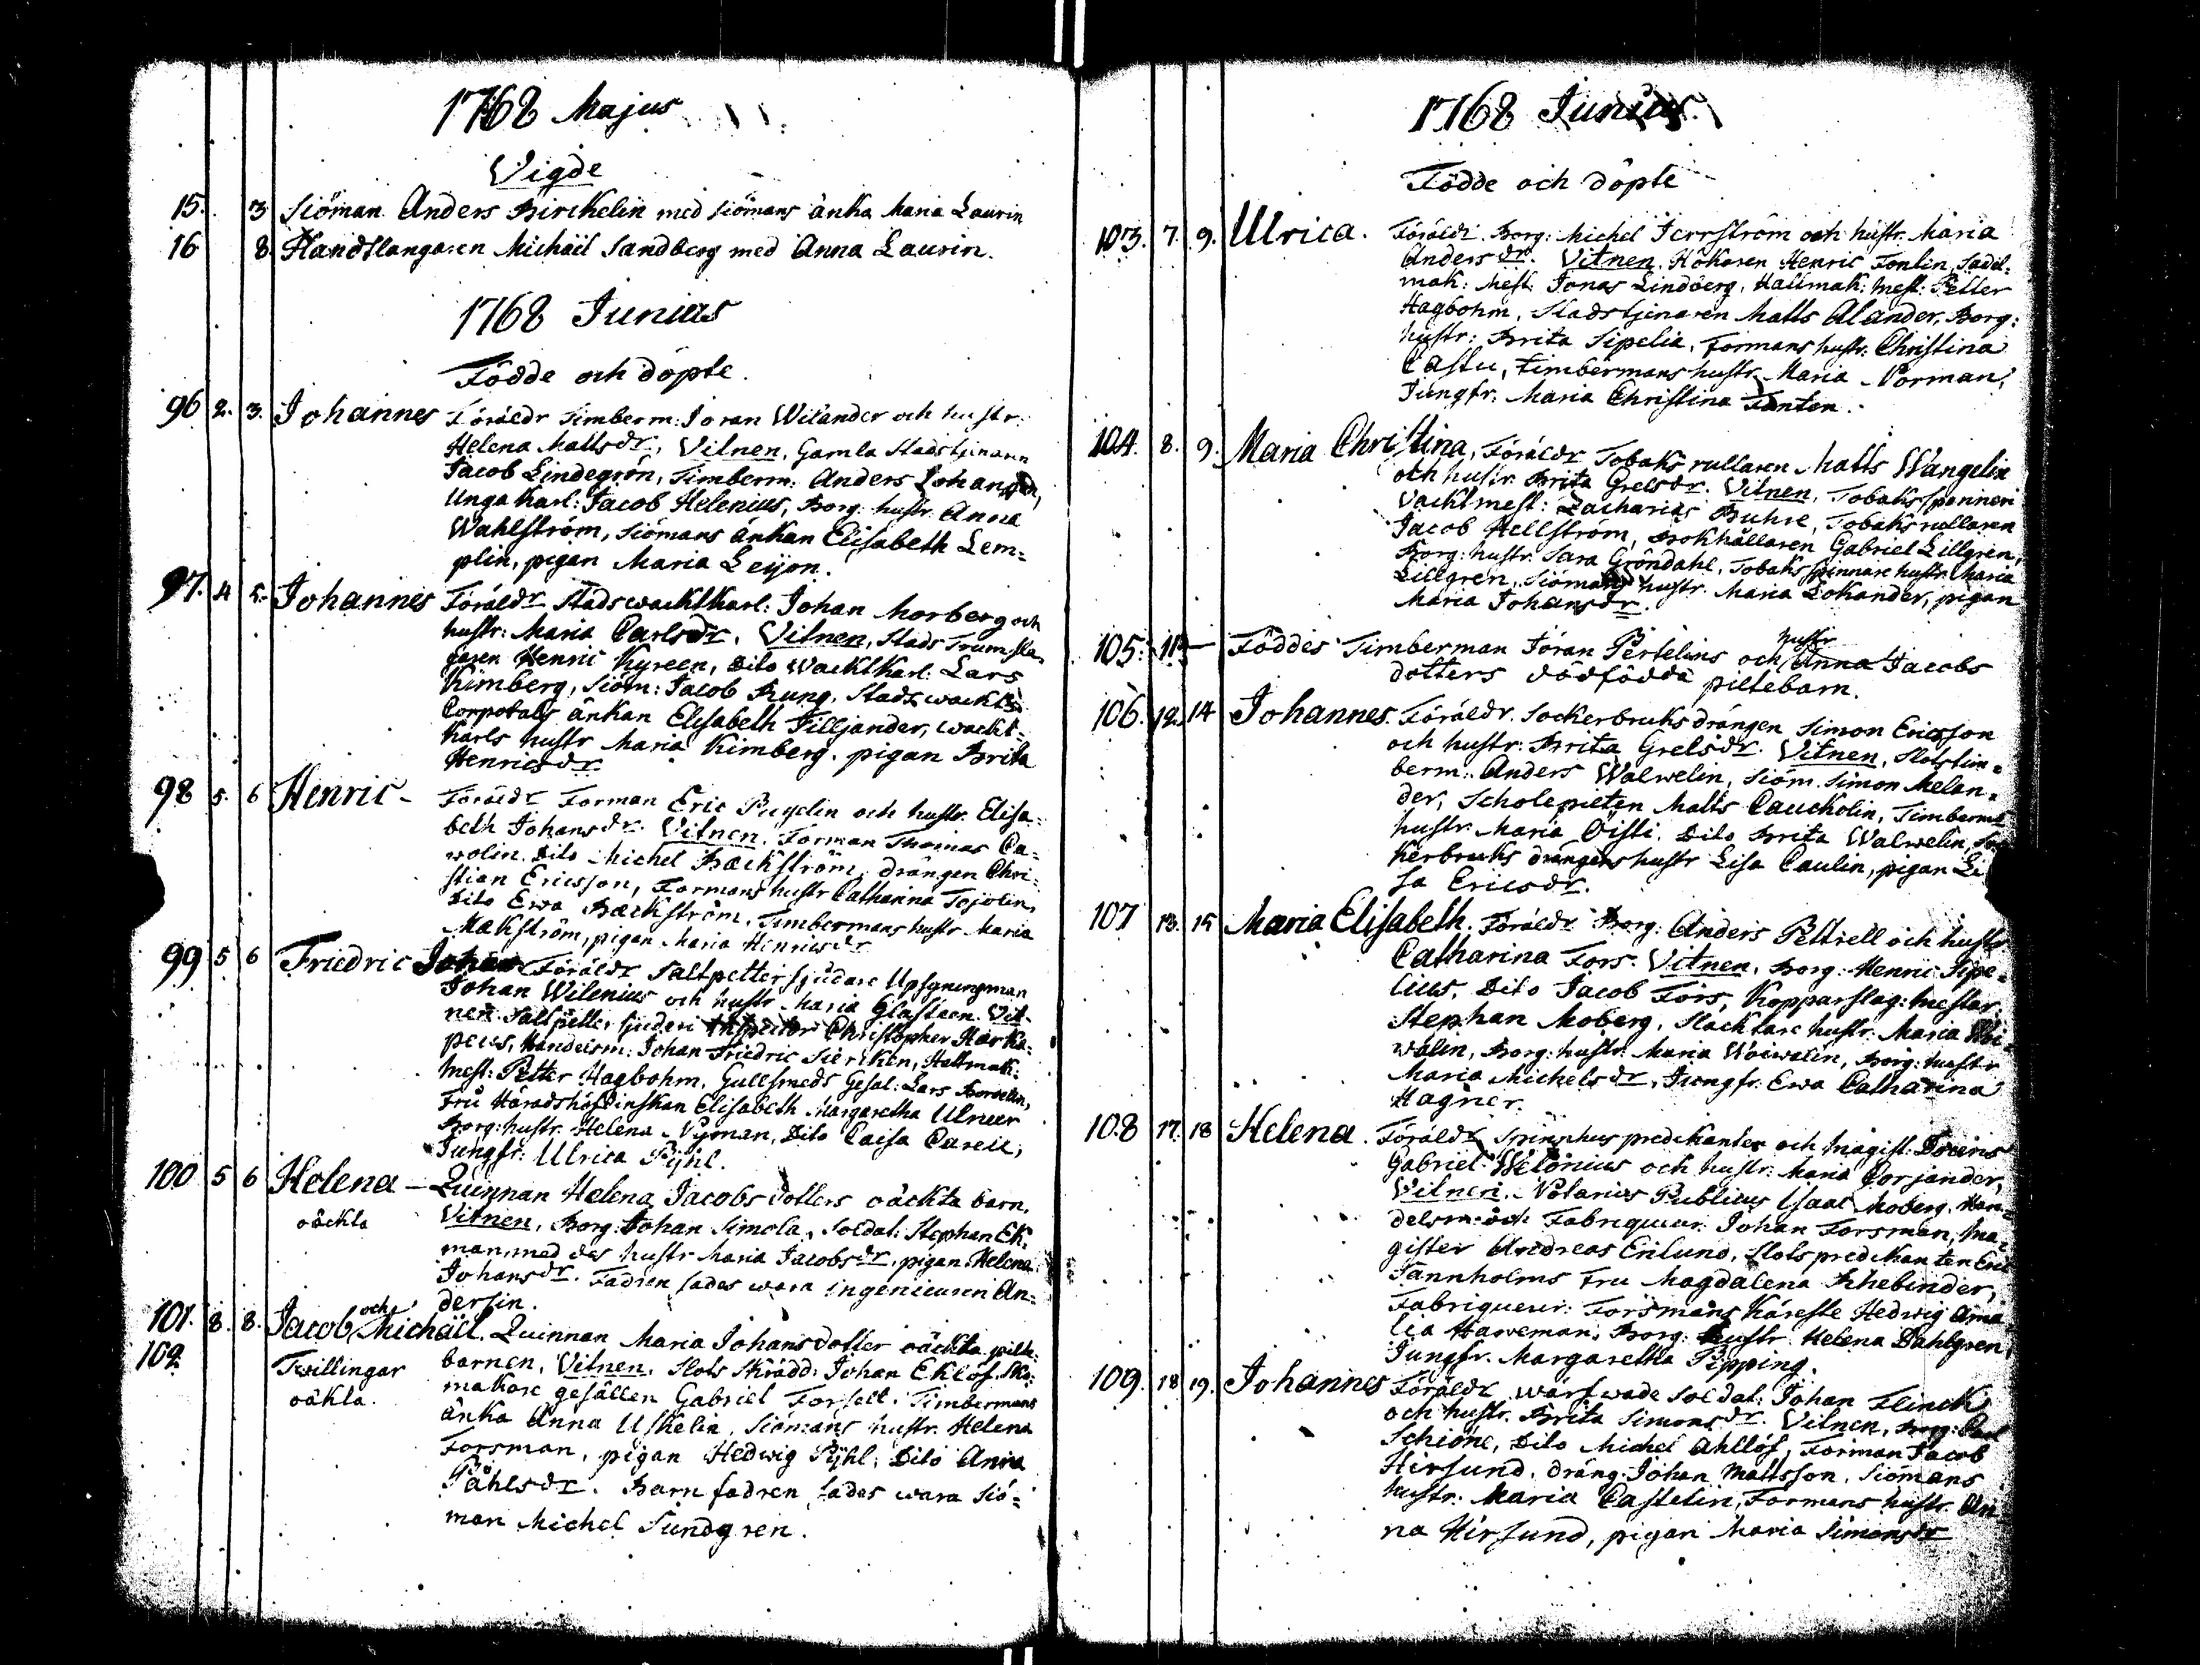 1768 Majus
Vigde
15. 3 Siöman Anders Birckelin med siömans änka Maria Laurin
16 8. Handtlangaren Michäel Sandberg med Anna Laurin.
1768 Junius
Födde och döpte.
96 2. 3. Johannes Föräldr Timberm: Joran Wilander och hustr:
Helena Mattsdr, Vitnen, Gamla Stadstjenaren
Jacob Lindegrön, Timberm: Anders
Unga Karl: Jacob Helenius, Borg: hustr. Anna
Wahlström, Siömans änkan Elisabeth Lem=
plin, pigan Maria Leijon.
97. 4 5. Johannes Föräldr Stadswacktkarl: Johan Morberg och
hustr: Maria Carlsdr. Vitnen, Stads Trumsla=
garen Henric Kyreen, Dito Wacktkarl: Lars
Kimberg, Siöm: Jacob Rung, Stads wackts
Corporals änkan Elisabeth Filljander, wackt=
karls hustr Maria Kimberg. pigan Brita
Henricsdr
98 5. 6 Henric - Föräldr Forman Eric och hustr. Elisa=
beth Johansdr. Vitnen. Forman Thomas Ca=
wolin. Dito Michel Bäckström, drängen Chri=
stian Ericsson, Formans hustr Catharina
Dito Ewa Bäckström. Timbermans hustr Maria
Mäkström, pigan Maria Henricsdr
99 5 6 Friedric Johan Föräldr Saltpettersjudare Upsyningsman
Johan Wilenius och hustr Maria Glasteen. Vit=
nen. Saltpetter sjuderi Inspector Christopher
Handelsm: Johan Friedric Sierken, Hattmak:
mest: Petter Hagbohm, Gullsmeds Gesäl: Lars
Fru Häradshöfdinskan Elisabeth Margaretha Ulneer
Borg: hustr. Helena Nyman, Dito Caisa Carell,
Jungfr: Ulrica Pÿhl.
100 5 6 Helena - Quinnan Helena Jacobs dotters oäckta barn,
oäckta Vitnen, Borg: Johan Simola, Soldat: Stephan Ek=
man, med des hustr Maria Jacobsdr, pigan Helena
Johansdr. Fadren sades wara ingenieuren An=
dersin.
101. 8. 8. Jacob och Michäel. Quinnan Maria Johansdotter oäckta pilte
102 Twillingar barnen, Vitnen, Slots Skrädd: Johan Eklöf, Sko=
oäkta. makare gesällen Gabriel Forsell. Timbermans
änka Anna Uskelin, Siömans hustr. Helena
Forsman, pigan Hedwig Pÿhl. Dito Anna
Påhlsdr. Barnfadren sades wara Siö=
man Michel Sundgren.
1768 Junius.
Födde och döpte
103. 7. 9. Ulrica. Föräldr. Borg: Michel Jerrström och hustr. Maria
Andersdr. Vitnen. Hökaren Henric Fonlin, Sadel=
mak: mest: Jonas Lindberg, Hattmak: mest: Petter
Hagbohm, Stadstjenaren Matts Alander, Borg:
hustr: Brita Sipelia, Formans hustr. Christina
Castu, timbermans hustr. Maria Norman,
Jungfr. Maria Christina
104. 8. 9. Maria Christina, Föräldr Tobaks rullaren Matts Wangelin
och hustr. Brita Grelsdr. Vitnen, Tobaks spinneri
Vacktmest: Zacharias Buhre, Tobaksrullaren
Jacob Hellström, Bokhållaren Gabriel Lillgren,
Borg: hustr. Sara Gröndahl, Tobaks spinnare hustr. Maria
Lillgren, Siömans hustr. Maria Lohander, pigan
Maria Johansdr.
105. 11 - Föddes Timberman Jöran Pertelius och hustr Anna Jacobs
dotters dödfödda piltebarn.
106. 12. 14 Johannes. Föräldr. Sockerbruks drängen Simon Ericsson
och hustr: Brita Grelsdr. Vitnen, Slotstim=
berm: Anders Walwelin, Siöm. Simon Melan=
der, Scholepilten Matts Cauckolin, Timberms
hustr. Maria Oisti. Dito Brita Walwelin, Soc
kerbruks drängens hustr Lisa Caulin, pigan Li
sa Ericsdr.
107 13. 15 Maria Elisabeth. Föräldr Borg: Anders Pettrell och hustr.
Catharina Fors. Vitnen, Borg: Henric Sipe=
lius, Dito Jacob Fors, Kopparslag: mestar
Stephan Moberg, Slacktare hustr. Maria Woi=
walin, Borg: hustr. Maria Woiwalin, Borg: hustr
Maria Michelsdr, Jungfr: Ewa Catharina
Hagner.
108 17. 18 Helena. Föräldr Spinnhus predikanten och Magist: Docens
Gabriel Welonius och hustr: Maria Corjander,
Vitnen. Notarius Publicus Isaac Moberg, Han=
delsm: och Fabriqueur: Johan Forsman, Ma=
gister Andreas Enlund, Slots predikanten Eric
Tannholms Fru Magdalena Rhebinder,
Fabriqueur: Forsmans Käreste Hedwig Ama
lia Haweman, Borg: hustr. Helena Dahlgren,
Jungfr. Margaretha Pipping.
109. 18 19. Johannes Föräldr warfwade Soldat: Johan Flinck
och hustr. Brita Simonsdr. Vitnen, Borg: Carl
Schiöne, Dito Michel Ahllöf, Forman Jacob
Hirsund, dräng: Johan Mattsson, Siömans
hustr: Maria Castelin, Formans hustr. An
na Hirsund, pigan Maria Simonsdr